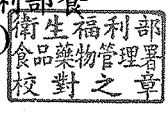 利部食
衛生福利部
食品藥物管理署
校對之章